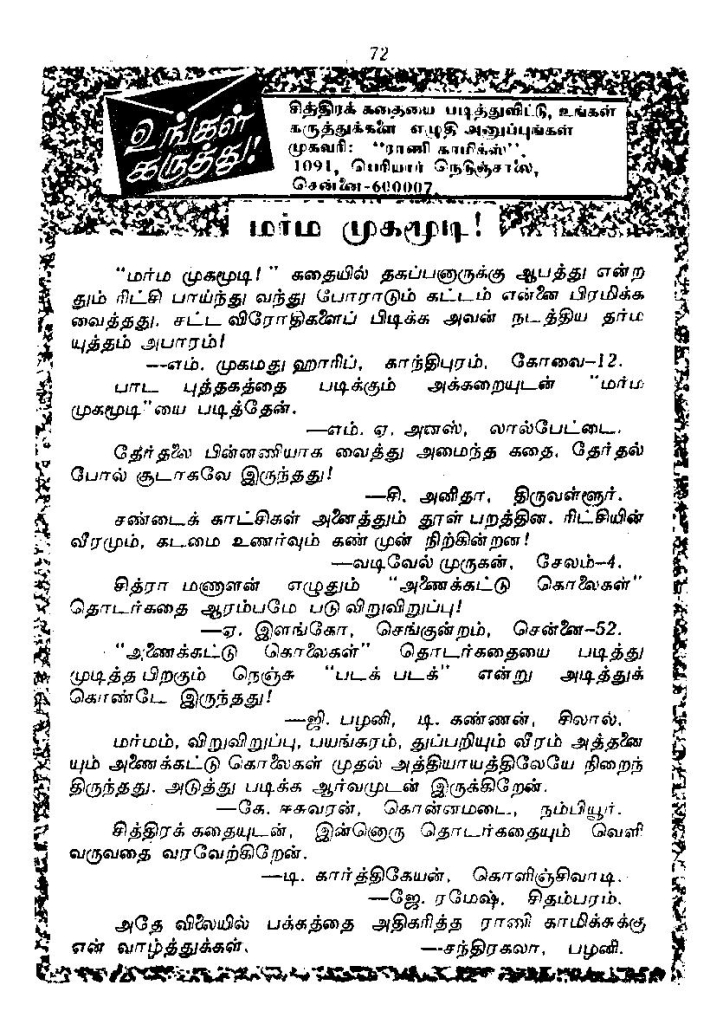 72
உங்கள்
கருத்து!
சித்திரக் கதையை படித்துவிட்டு, உங்கள்
கருத்துக்களை எழுதி அனுப்புங்கள்
முகவரி: "ராணி காமிக்ஸ்",
1091, பெரியார் நெடுஞ்சாலை,
சென்னை-600007.
மர்ம முகமூடி!
"மர்ம முகமூடி! " கதையில் தகப்பனாருக்கு ஆபத்து என்ற
தும் ரிட்சி பாய்ந்து வந்து போராடும் கட்டம் என்னை பிரமிக்க
வைத்தது. சட்ட விரோதிகளைப் பிடிக்க அவன் நடத்திய தர்ம
யுத்தம் அபாரம்!
—எம். முகமது ஹாரிப், காந்திபுரம், கோவை–12.
பாட புத்தகத்தை படிக்கும் அக்கறையுடன் "மர்ம
முகமூடி"யை படித்தேன்.
—எம். ஏ. அனஸ், லால்பேட்டை.
தேர்தலை பின்னணியாக வைத்து அமைந்த கதை, தேர்தல்
போல் சூடாகவே இருந்தது!
—சி. அனிதா, திருவள்ளூர்.
சண்டைக் காட்சிகள் அனைத்தும் தூள் பறத்தின. ரிட்சியின்
வீரமும், கடமை உணர்வும் கண் முன் நிற்கின்றன!
—வடிவேல் முருகன், சேலம்–4.
சித்ரா மணாளன் எழுதும் "அணைக்கட்டு கொலைகள்"
தொடர்கதை ஆரம்பமே படு விறுவிறுப்பு!
—ஏ. இளங்கோ, செங்குன்றம், சென்னை–52.
"அணைக்கட்டு கொலைகள்" தொடர்கதையை படித்து
முடித்த பிறகும் நெஞ்சு "படக் படக்" என்று அடித்துக்
கொண்டே இருந்தது!
—ஜி. பழனி, டி. கண்ணன், சிலால்.
மர்மம், விறுவிறுப்பு, பயங்கரம், துப்பறியும் வீரம் அத்தனை
யும் அணைக்கட்டு கொலைகள் முதல் அத்தியாயத்திலேயே நிறைந்
திருந்தது. அடுத்து படிக்க ஆர்வமுடன் இருக்கிறேன்.
—கே. ஈசுவரன், கொன்னமடை., நம்பியூர்.
சித்திரக் கதையுடன், இன்னொரு தொடர்கதையும் வெளி
வருவதை வரவேற்கிறேன்.
—டி. கார்த்திகேயன், கொளிஞ்சிவாடி.
—ஜே. ரமேஷ், சிதம்பரம்.
அதே விலையில் பக்கத்தை அதிகரித்த ராணி காமிக்சுக்கு
என் வாழ்த்துக்கள். —சந்திரகலா, பழனி.